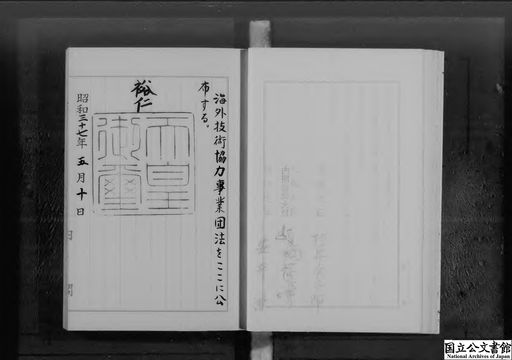 海外技術協力事業団法をここに公
布する。
裕仁
天皇御璽
昭和三十七年五月十日
国立公文書館
National Archives of Japan